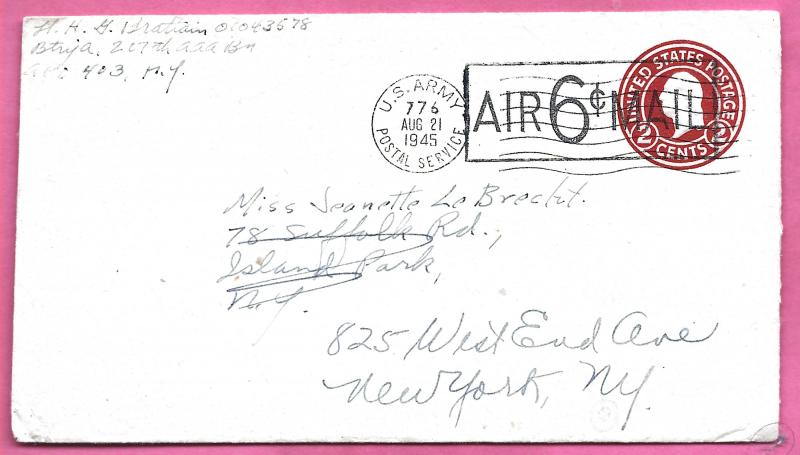 H. H. G. Hratiain O1043578
Btry A. 217th aaa Bn
APO 403, N.Y.
U.S. ARMY
776
AUG 21
1945
POSTAL SERVICE
AIR 6¢ MAIL
UNITED STATES POSTAGE
2 CENTS 2
Miss Jeanette Le Brecht.
78 Suffolk Rd.,
Island Park,
N.Y.
825 West End Ave
New York, NY.